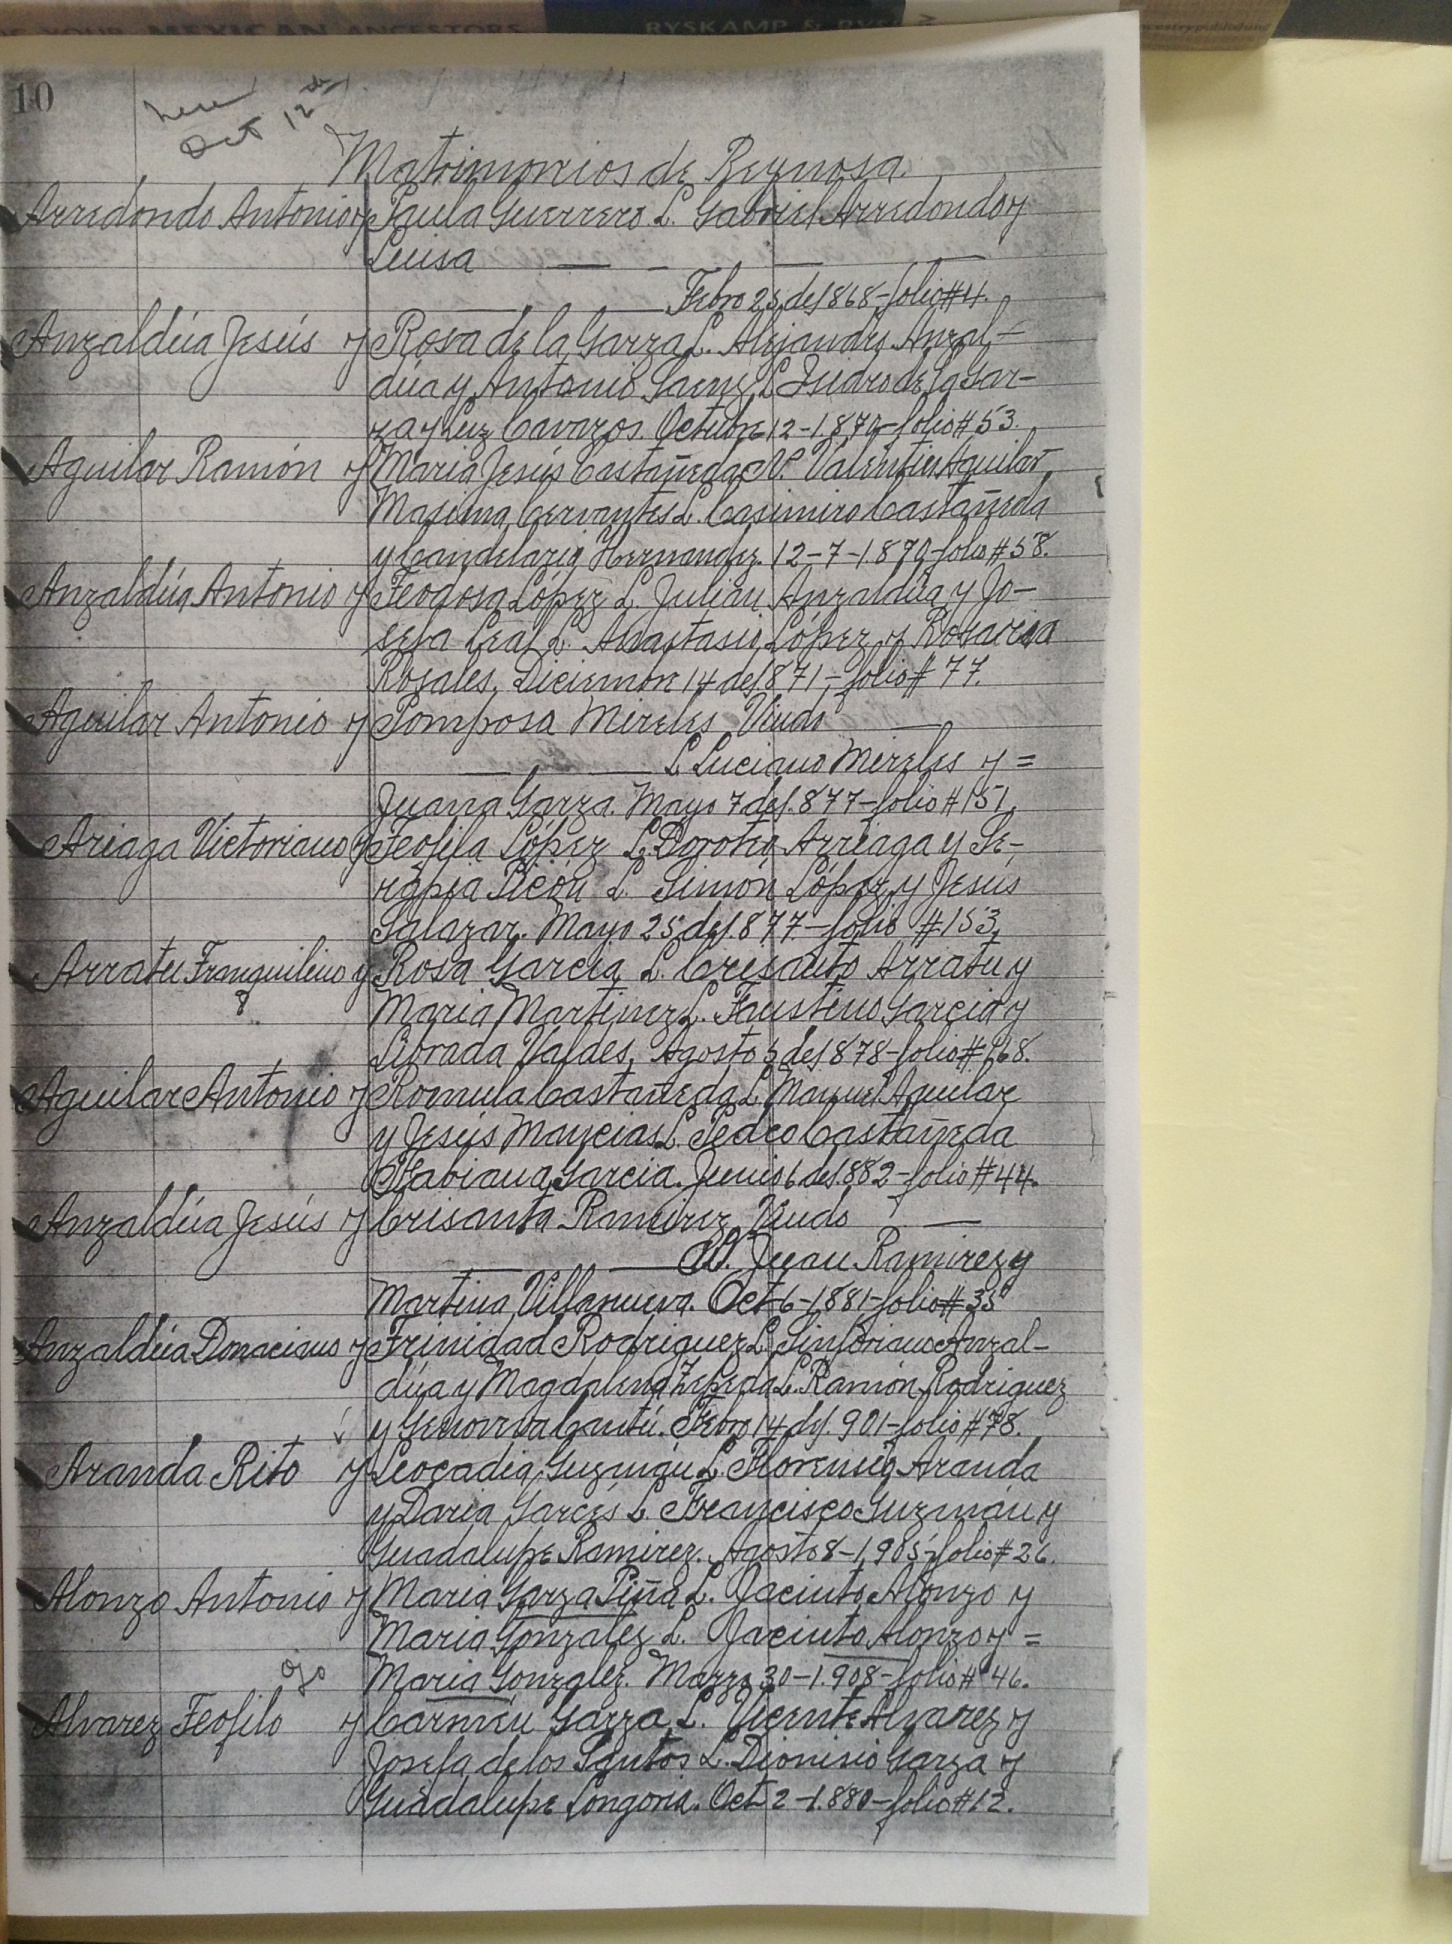 MEXICAN ANCESTORS
RYSKAMP &
ancestrypublishing
10
here
Oct 12
Matrimonios de Reynosa.
Arredondo Antonio y Paula Guerrero L. Gabriel Arredondo y
Luisa
Febro 25 de 1868-folio #4.
Anzaldúa Jesús y Rosa de la Garza L. Alejandro Anzal-
dúa y Antonio Saenz L. Isidro de la Gar-
za y Luz Cavazos. Octubre 12-1.870-folio #53.
Aguilar Ramón y Maria Jesús Castañeda N. Valentin Aguilar
Masima Cervantes L. Casimiro Castañeda
y Candelaria Hernandez. 12-7-1.870-folio #58.
Anzaldúa Antonio y Teodosa López L. Julian Anzaldúa y Jo-
sefa Leal L. Anastasio López y Rosaria
Rosales. Diciembre 14 de 1871,-folio #77.
Aguilar Antonio y Pomposa Mireles Viudo
L Luciano Mireles y =
Juana Garza. Mayo 7 de 1.877-folio #151,
Ariaga Victoriano y Teofila López L. Doroteo Arriaga y Se-
rapia Picón L. Simón López y Jesús
Salazar. Mayo 25 de 1.877-folio #153,
Arratu Tranquilino y Rosa Garcia L. Crisanto Arratu y
Maria Martinez L. Faustino Garcia y
Librada Valdes. Agosto 5 de 1878-folio #168.
Aguilar Antonio y Romula Castañeda L Manuel Aguilar
y Jesús Mancias L. Pedro Castañeda
Fabiana Garcia. Junio 6 de 1882-folio #44.
Anzaldúa Jesús y Crisanta Ramirez Viudo
N. Juan Ramirez y
Martina Villanueva. Oct-6-1.881-folio #35
Anzaldúa Donaciano y Trinidad Rodriguez L. Sinforiano Anzal-
dúa y Magdalena Zepeda L. Ramón Rodriguez
y Genoveva Cantú. Febro 14 de 1.901-folio #78.
Aranda Rito y Leocadia Guzmán L. Florensio Aranda
y Daria Garcés L. Francisco Guzmán y
Guadalupe Ramirez. Agosto 8-1,905-folio #26.
Alonzo Antonio y Maria Garza Piña L. Jacinto Alonzo y
Maria Gonzalez L. Jacinto Alonzo y =
ojo Maria Gonzalez. Marzo 30-1.908-folio #46.
Alvarez Teofilo y Carmen Garza L. Vicente Alvarez y
Josefa de los Santos L. Dionisio Garza y
Guadalupe Longoria. Oct 2-1.880-folio #12.